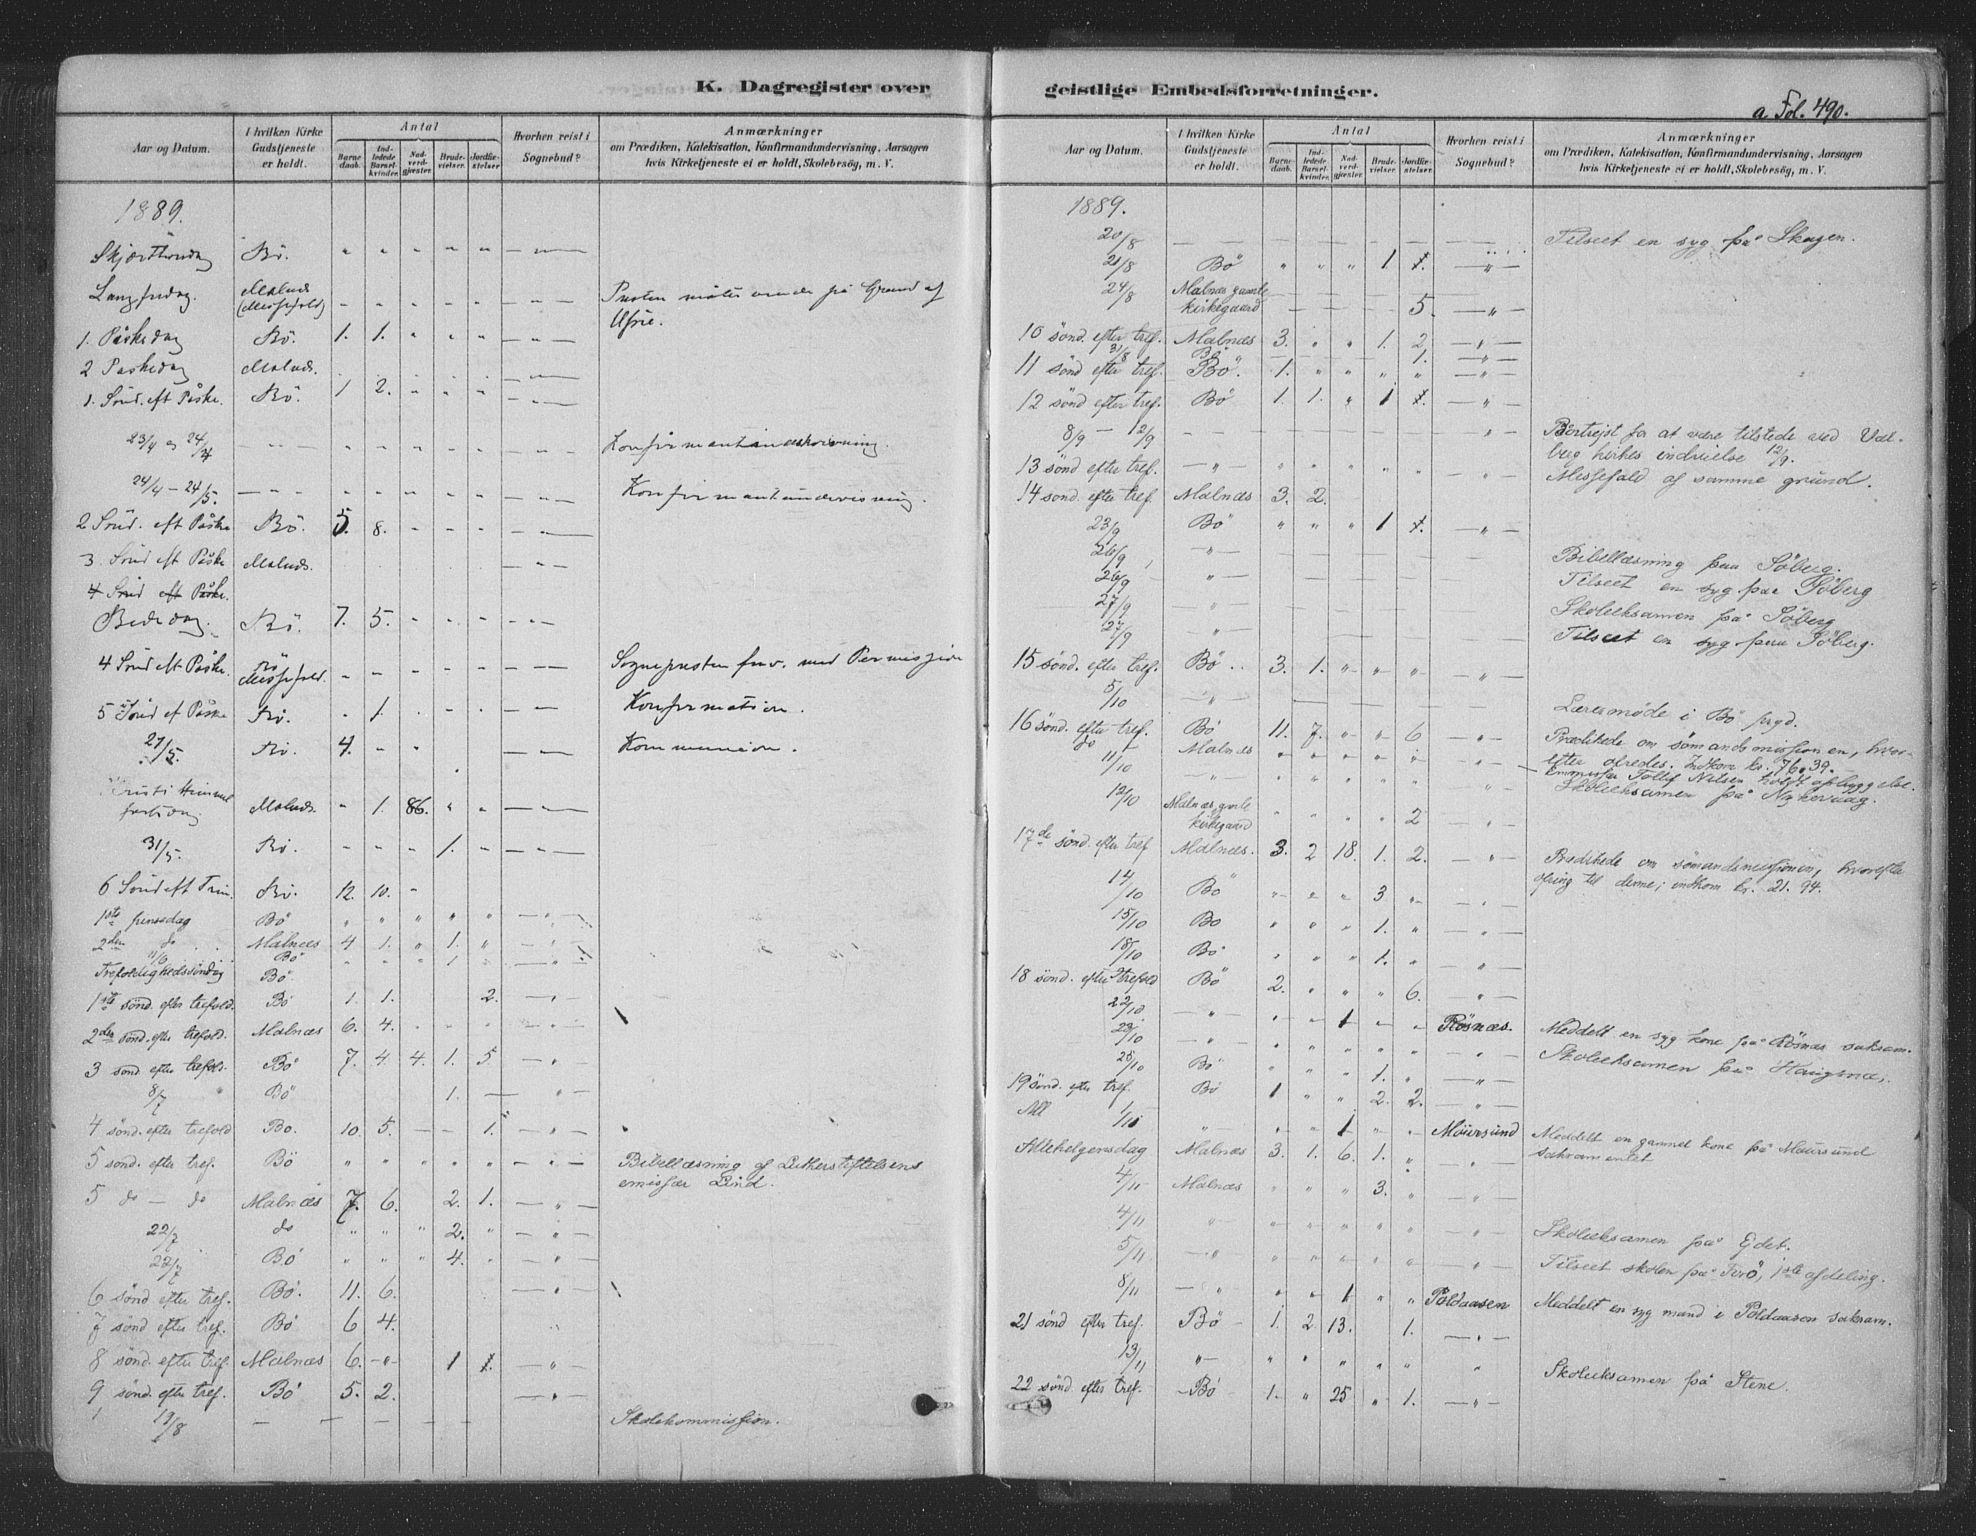 K. Dagregister over
Aar og Datum.
I hvilken Kirke Gudstjeneste er holdt.
Antal
Barnedaab.
Indledede Barselkvinder.
Nadverdgjæster.
Brudevielser.
Jordfæstelser.
Hvorhen reist i Sognebud?
Anmærkninger
om Prædiken, Katekisation, Konfirmandundervisning, Aarsagen
hvis Kirketjeneste ei er holdt, Skolebesög, m. V.
1889.
Skjærthorsdag Bö. " " " " " — " —
Langfredag. Malnæs (Messefald) " " " " " — " — Presten maatte vende på Grund af
Uføre.
1. Påskedag Bö. 1. 1. " " " — " —
2 Paskedag Malnæs. — " —
1. Sönd. eft Påske. Bö. 1 2. " " " — " —
23/4 og 24/4 — " — " " " " " — " — Konfirmantindskrivning.
24/4 — 24/5. — " — " " " " " — " — Konfirmantundervisning.
2 Sönd. eft Påske Bö. 5. 8. " " " — " —
3. Sönd eft Påske Malnæs. — " —
4 Sönd eft Påske.
Bededag. Bö. 7. 5. " " " — " —
4 Sönd eft Påske. Bö Messefald. " " " " " — " — Sognepresten frav. med Permission
5 Sönd ef Påske Bö. " 1. " " " — " — Konfirmation.
27/5. Bö. 4. " " — " — Kommunion.
Kristi Himmelfartsdag. Malnæs. " 1. 86. " " — " —
31/5. Bö. " " " 1. " — " —
6 Sönd eft Trin. Bö. 12. 10. "
1ste pinsedag Bö " " " " " — " —
2den do Malnæs 4 1. " 1. " — " —
11/6 Bö " " " 1 " — " —
Trefoldighedssöndag Bö
1ste sönd. efter trefold. Bö 1. 1. 2. — " —
2den sönd. efter trefold. Malnæs 6. 4. " " " — " —
3 sönd efter trefold. Bö 7. 4. 4. 1. 5 — " —
8/7 Bö 1. — "
4 sönd. efter trefold Bö. 10. 5. — — 1. — " —
5 sönd. efter tref. Bö " " " " " — " — Bibellæsning af Lutherstiftelsens
emissær Lind.
5 do — do Malnæs 7. 6. 2. 1. — " —
22/7 do " " " 2. " — " —
22/7 Bö " " " 4. " — " —
6 sönd efter tref. Bö. 11. 6. — " —
7 sönd efter tref. Bö 6 4. "
8 sönd. efter tref. Malnæs 6. — " — 1 1. — " —
9 sönd. efter tref. Bö 5. 2. — " —
19/8 — — — — Skolekommission.
geistlige Embedsforretninger.
a Fol. 490.
Aar og Datum.
I hvilken Kirke Gudstjeneste er holdt.
Antal
Barnedaab.
Indledede Barselkvinder.
Nadverdgjæster.
Brudevielser.
Jordfæstelser.
Hvorhen reist i Sognebud?
Anmærkninger
om Prædiken, Katekisation, Konfirmandundervisning, Aarsagen
hvis Kirketjeneste ei er holdt, Skolebesög, m. V.
1889.
20/8 — — — — — — Tilseet en syg på Skagen.
21/8 Bö " " " 1 1. — " —
24/8 Malnæs gamle kirkegaard — — — — 5. — " —
10 sönd. efter tref. Malnæs 3. " " 1. 2. — " —
31/8 Bö 1. — " —
11 sönd efter tref. Bö. 1. " " " " — " —
12 sönd efter tref. Bö 1. 1. " 1 1. — " —
8/9 — 12/9 — — — — — — " Bortrejst for at være tilstede ved Val-
berg kirkes indvielse 12/9.
13 sönd efter tref. — " — " " " " " — " — Messefald af samme grund.
14 sönd. efter tref. Malnæs 3. 2.
23/9 Bö " " " 1 1. — " —
26/9 — " — Bibellæsning paa Söberg.
26/9 — " — Tilseet en syg paa Söberg
27/9 — " — Skoleeksamen på Söberg
27/9 — " — Tilseet en syg paa Söberg.
15 sönd. efter tref. Bö. 3. 1. " " "
5/10 — " — Læremöde i Bö prgd.
16 sönd. efter tref. Bö 11. 7. " " 6 — " — Prædikede om sömandsmissionen, hvor-
efter ofredes. Indkom kr. 76.39.
do Malnæs " " " " " Emissær Tollef Nilsen holdt opbyggelse.
11/10 — " — " " " " " " Skoleeksamen på Nykvaag.
12/10 Malnæs gamle kirkegaard " " " " 2 — " —
17de sönd. efter tref Malnæs. 3. 2 18. 1. 2. — " — Prædikede om sömandsmissionen, hvorefter
ofring til denne; indkom kr. 21.94.
14/10 Bö " " " 3. " — " —
15/10 Bö " " " 1. " — " —
18/10 Bö " " " 1. " — " —
18 sönd. efter trefold Bö 2. " " " 6. — " —
22/10 — " — " " 1 " " Rösnæs. Meddelt en syg kone på Rösnæs sakram.
23/10 — " — " " " " " — " — Skoleeksamen på Haugsnæs.
25/10 Bö 1. " — " —
19 sönd. efter tref. Bö 1 " " 2. 2. — " —
All 1/11 — " — " " 1 " " Möiersund Meddelt en gammel kone på Maursund
sakramentet
Allehelgensdag Malnæs 3. 1. 6. 1. " — " —
4/11 Malnæs " " " 3. " — " —
4/11 — " — " " " " " " Skoleeksamen på Ejdet.
5/11 — " — " " " " " " Tilseet skolen på Tirö, 1ste afdeling.
8/11 — " — " " 1 " " Poldaasen Meddelt en syg mand i Poldaasen sakram.
21 sönd efter tref. Bö 1. 2 13. 1. — " —
13/11 — " — " " " " " " Skoleeksamen på Stene.
22 sönd efter tref. Bö 1. " 25 " 1. — " —